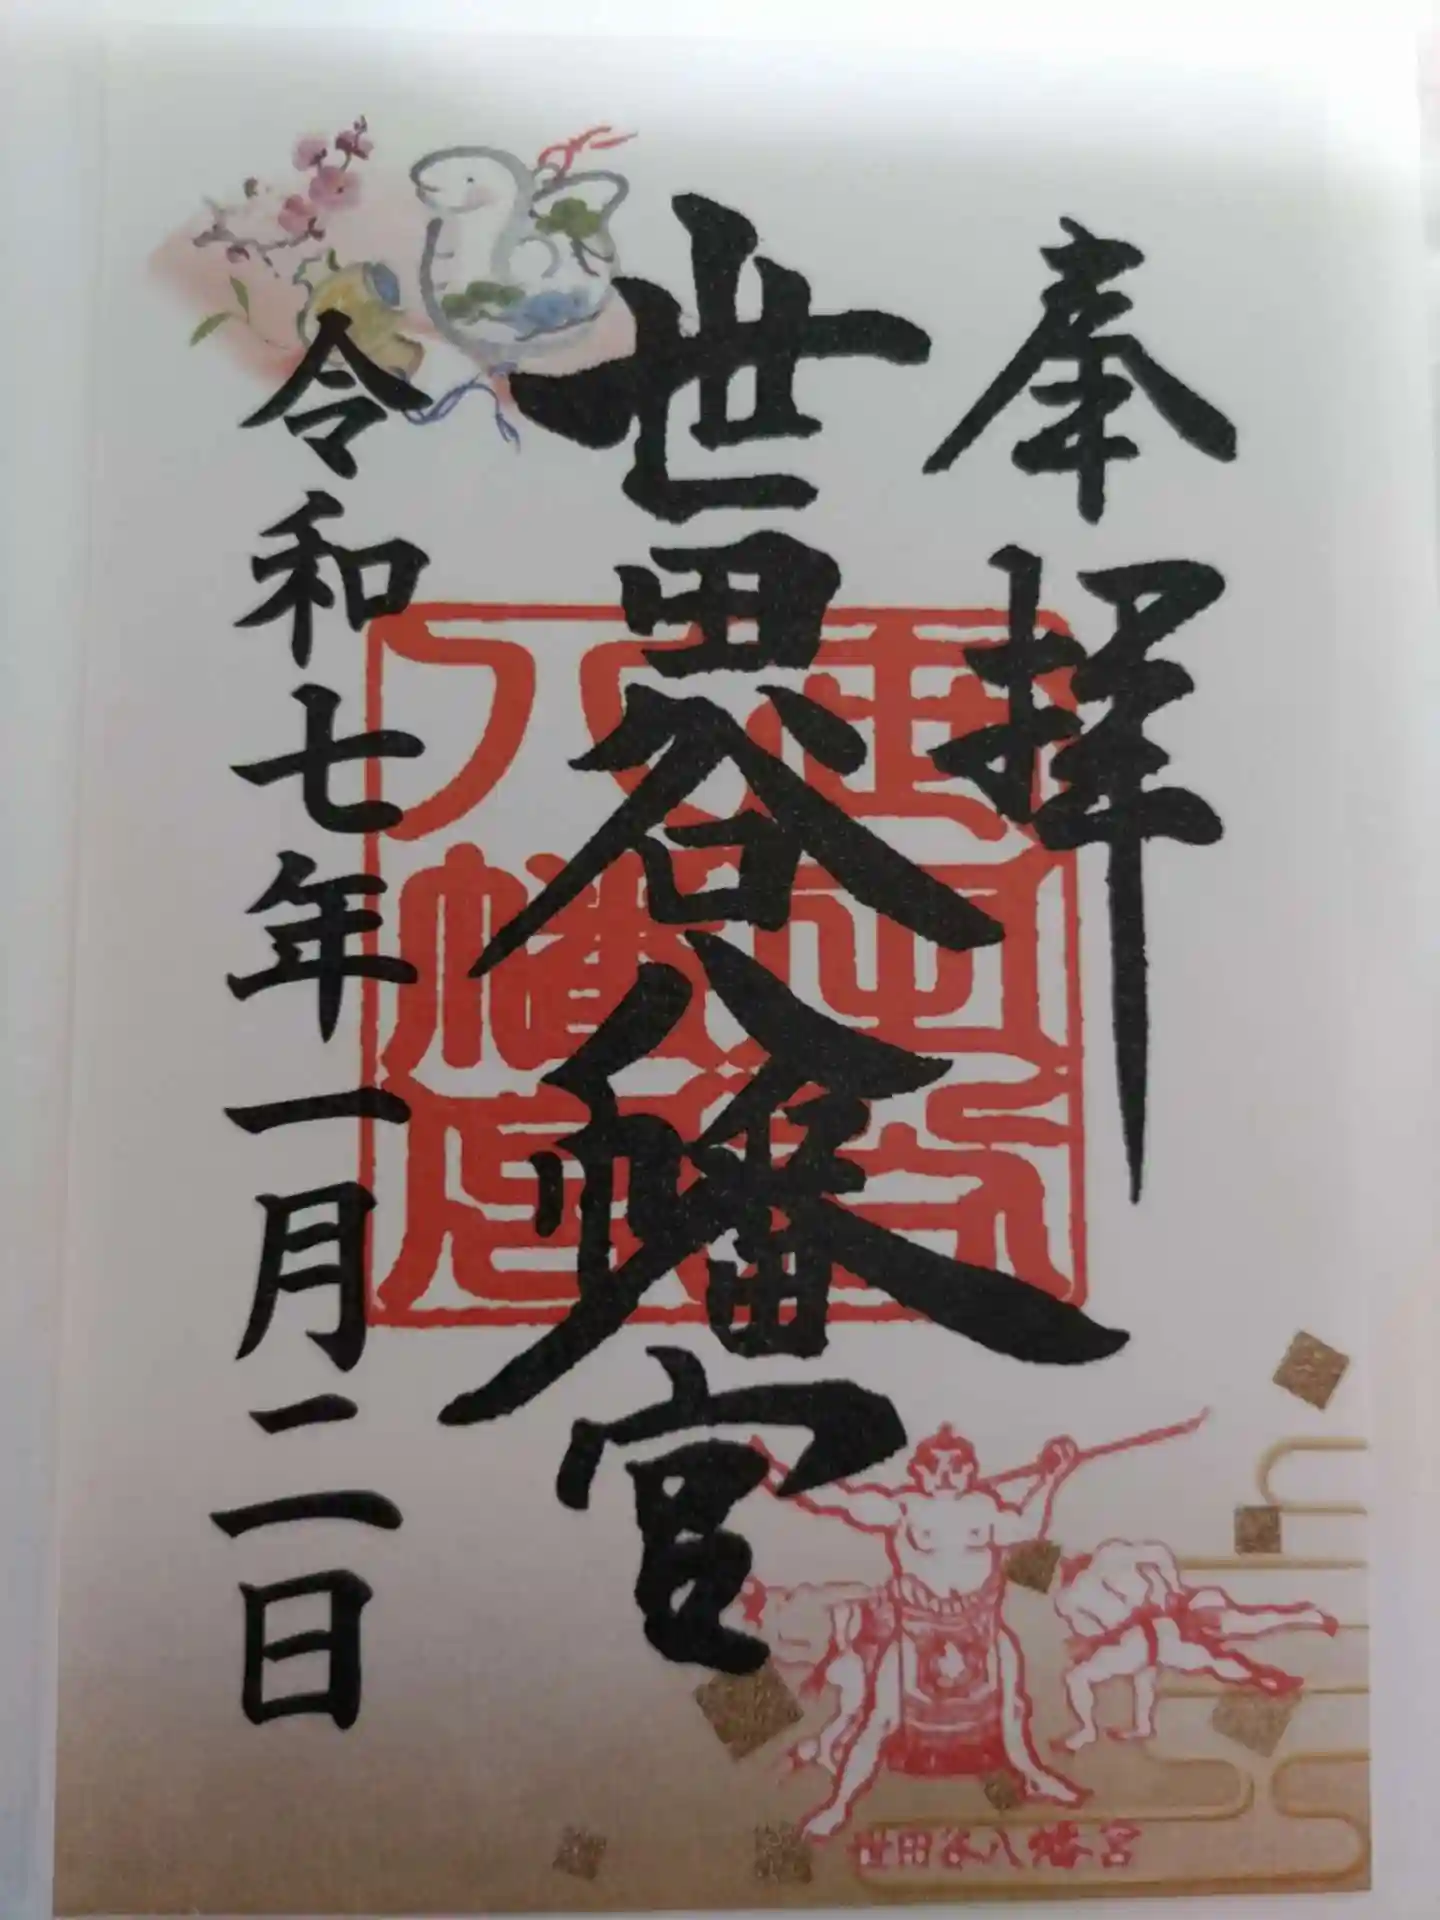 奉拝
世田谷八幡宮
令和七年一月二日
世田谷
八幡宮
世田谷八幡宮